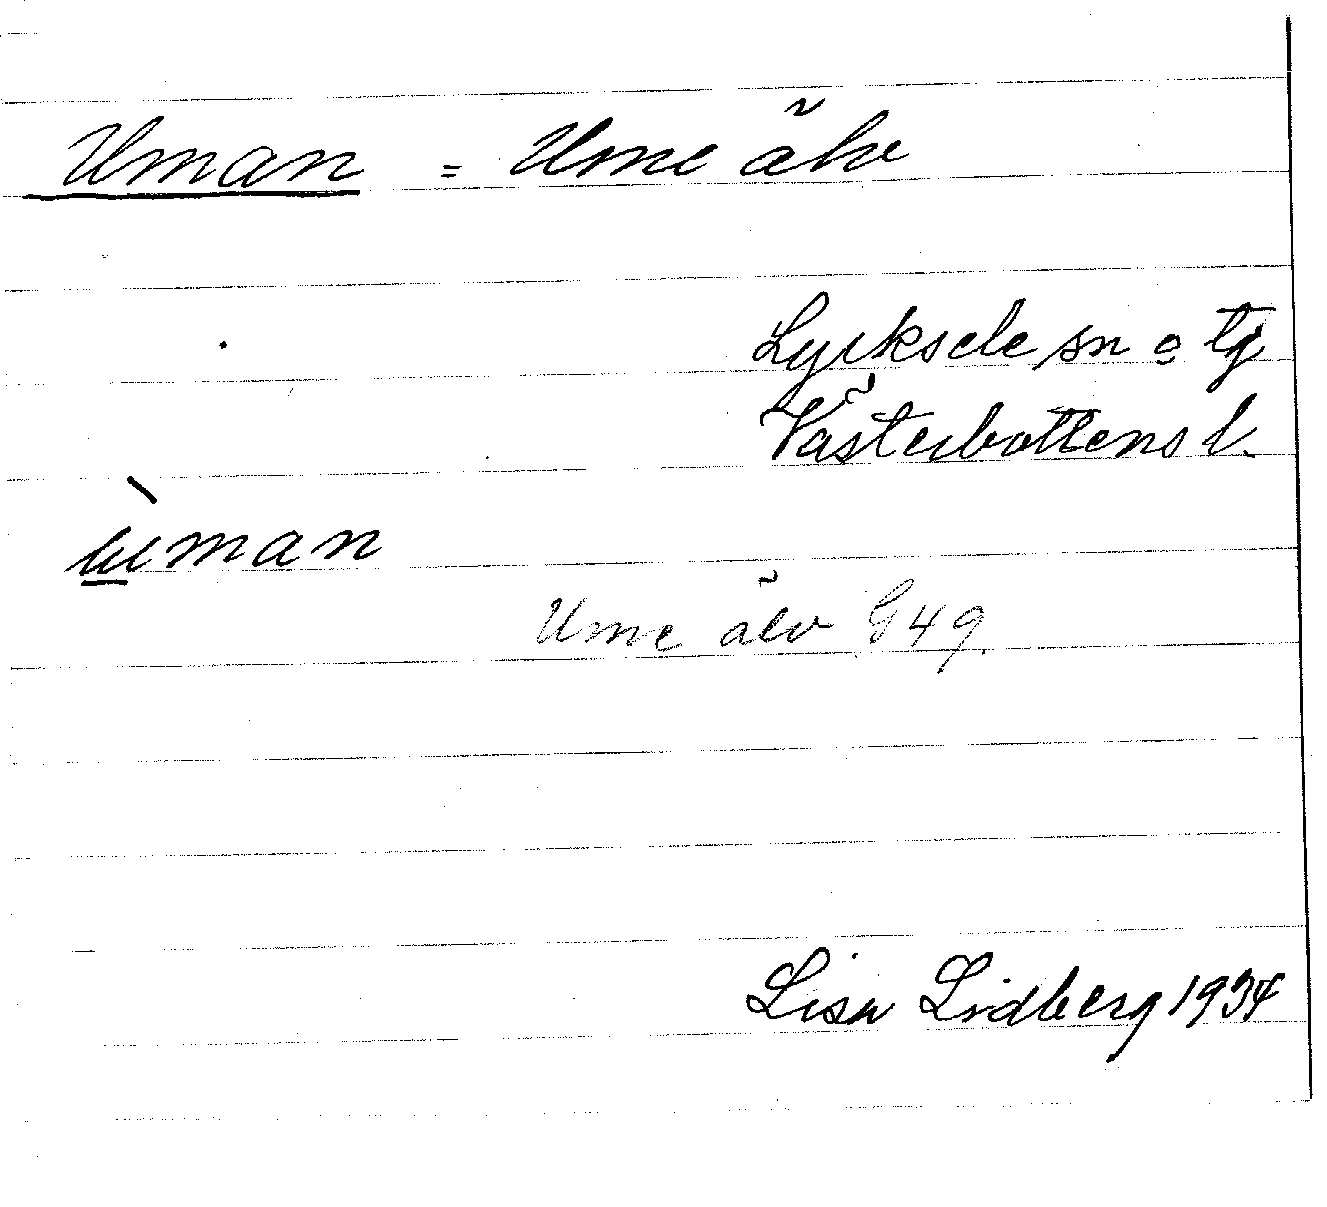 Uman = Ume älv
Lycksele sn o tg
Västerbottens l.
ùman
Ume älv G49.
Lisa Lidberg 1934